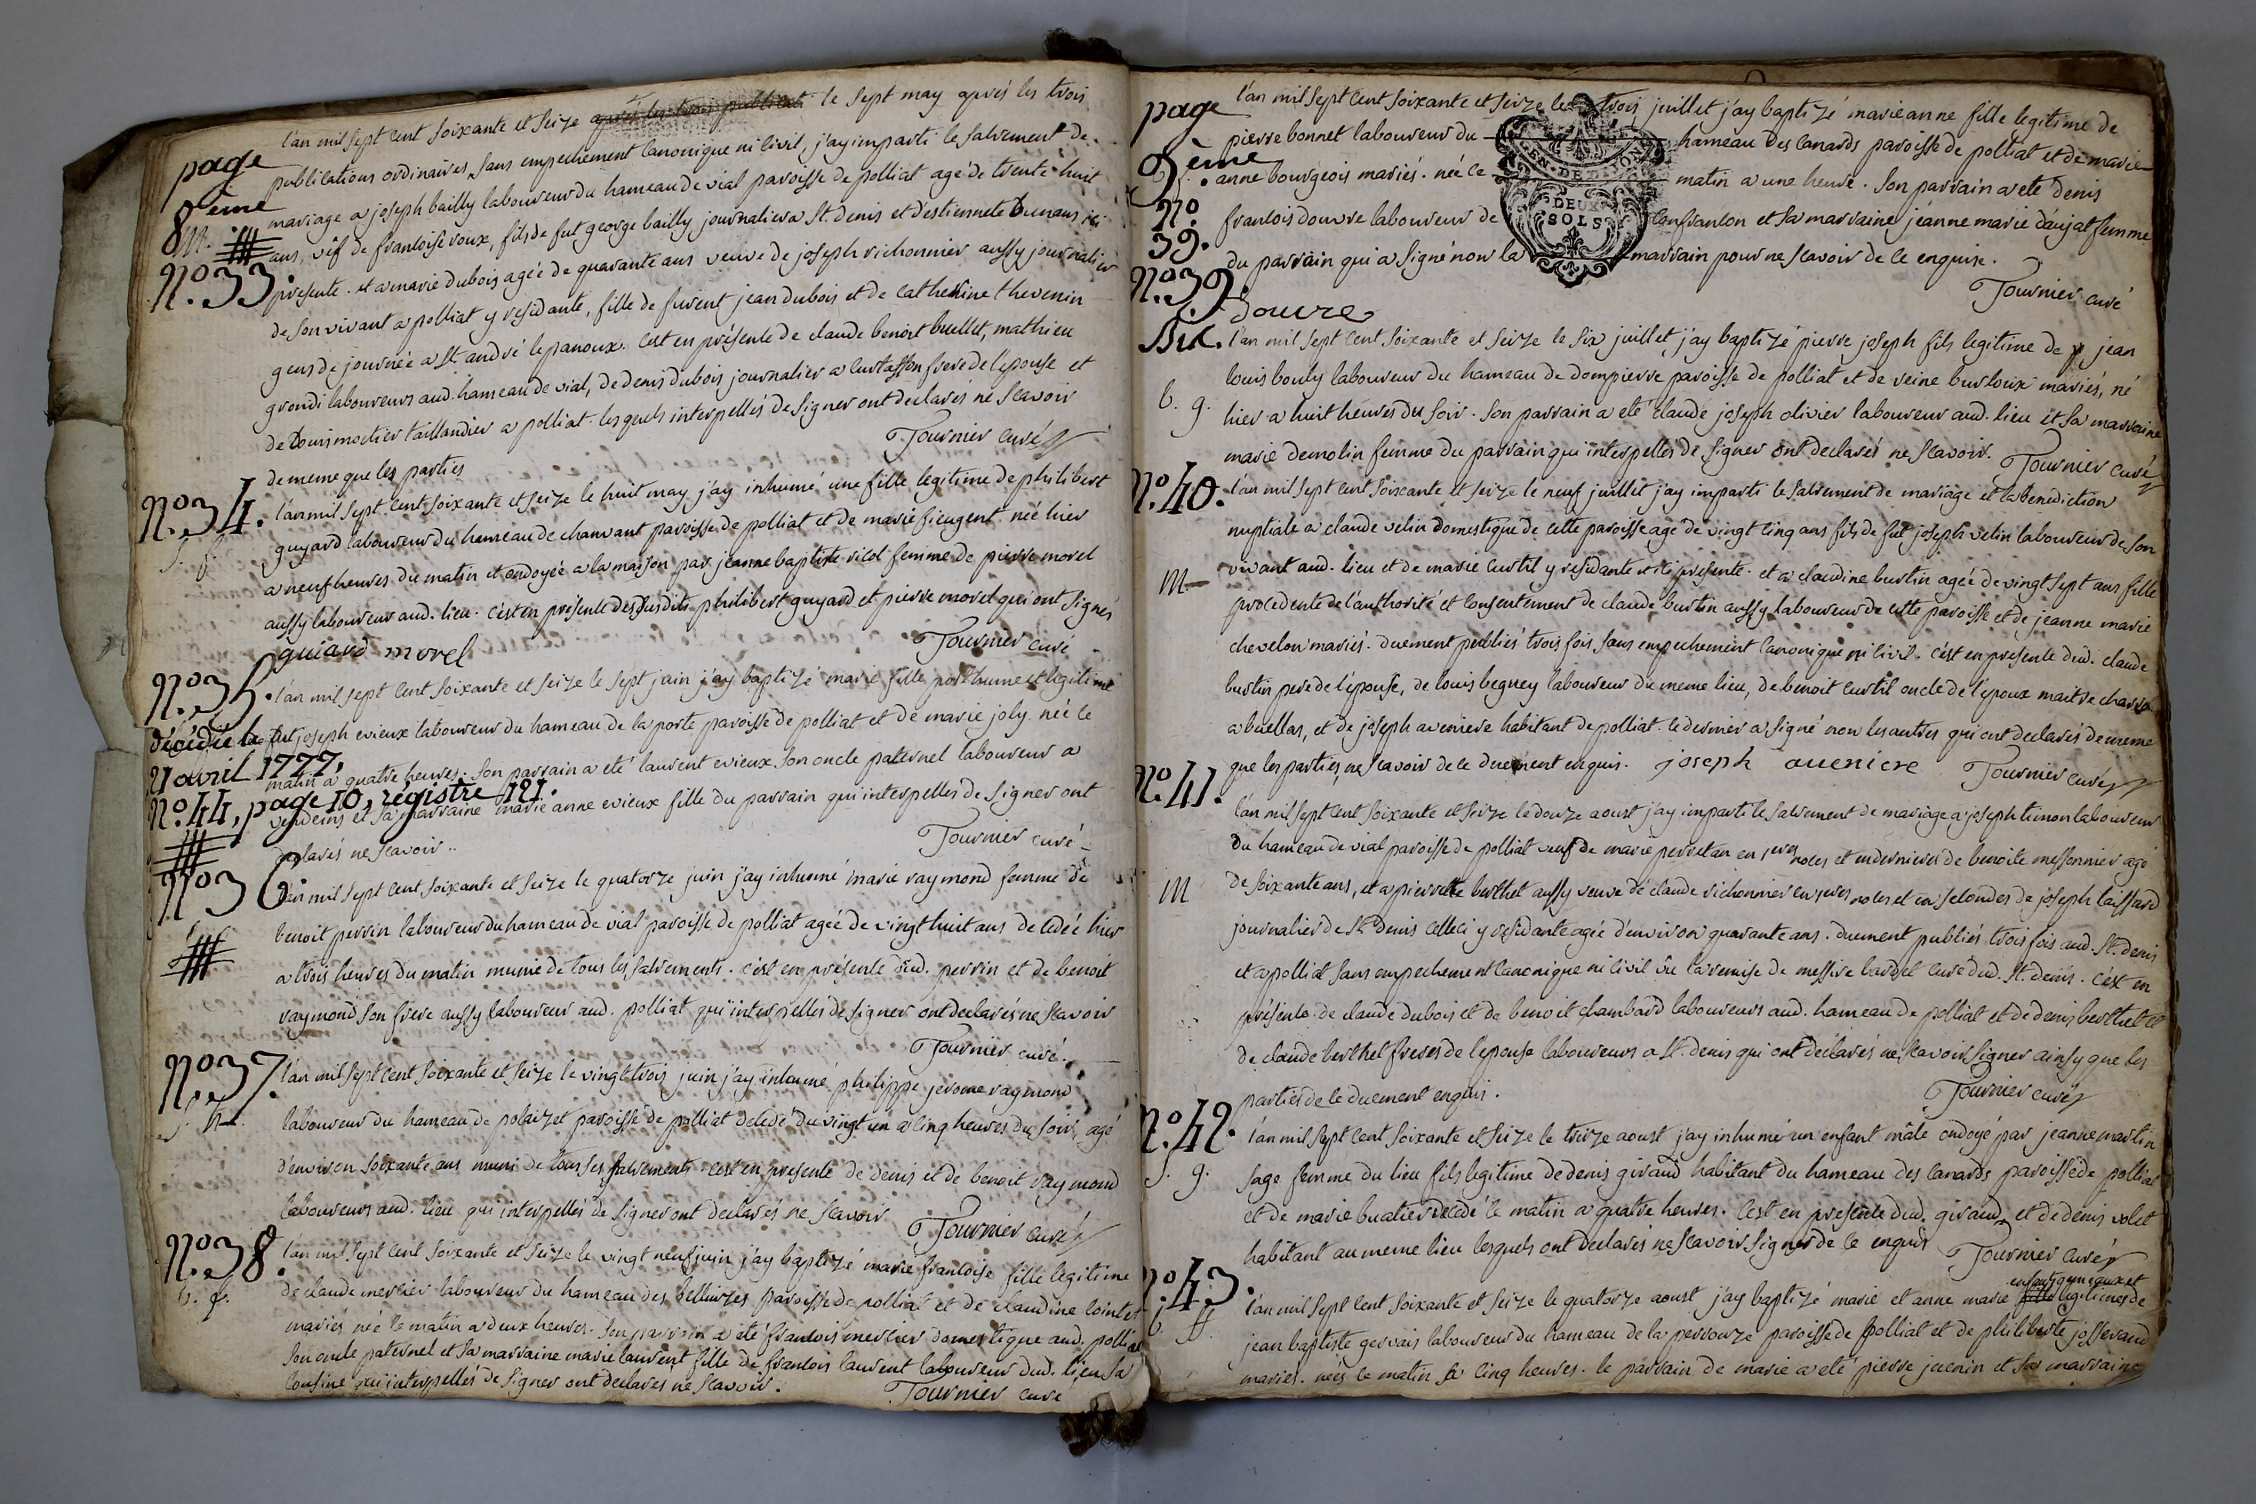 page
8ème
l'an mil sept cent soixante et seize le sept may aprés les trois
publications ordinaires, sans empechement canonique ni civil, j'ay imparti le sacrement de
mariage a joseph bailly laboureur du hameau de vial paroisse de polliat agé de trente huit
m.
ans, vëf de francoise roux, fils de fut george bailly journalier a St. denis et d'estiennete Dunans ici
N.º 33.
presente. et a marie dubois agée de quarante ans veuve de joseph richonnier aussy journalier
de son vivant a polliat y residante, fille de furent jean dubois et de catherine thevenin
gens de journée a St. andré le panoux. c'est en présence de claude benoit buellet, mathieu
grondi laboureurs aud. hameau de vial, de denis dubois journalier a curtasson frere de l'epouse et
de Louis moitier taillandier a polliat. lesquels interpellés de signer ont declarés ne scavoir
de meme que les parties
Tournier curé
N.º 34.
l'an mil sept cent soixante et seize le huit may j'ay inhumé une fille legitime de philibert
guyard laboureur du hameau de chanvant paroisse de polliat et de marie ficugent neé hier
s. f.
a neuf heures du matin et ondoyée a la maison par jeanne baptiste ricol femme de pierre morel
aussy laboureur aud. lieu. c'est en présence des susdits philibert guyard et pierre morel qui ont signés
guiard morel
Tournier curé
N.º 35.
l'an mil sept cent soixante et seize le sept juin j'ay baptizé marie fille posthume et legitime
décédée le
de fut joseph evieux laboureur du hameau de la porte paroisse de polliat et de marie joly. née ce
21 avril 1777,
matin a quatre heures. son parrain a eté laurent evieux son oncle paternel laboureur a
N.º 44, page 10, régistre 121.
vendeins et sa marraine marie anne evieux fille du parrain qui interpellés de signer ont
declarés ne scavoir..
Tournier curé
N.º 36.
l'an mil sept cent soixante et seize le quatorze juin j'ay inhumé marie raymond femme de
benoit perrin laboureur du hameau de vial paroisse de polliat agée de vingt huit ans decedée hier
a trois heures du matin munie de tous les sacrements. c'est en présence dud. perrin et de benoit
raymond son frere aussy laboureur aud. polliat qui interpellés de signer ont declarés ne scavoir
Tournier curé.
N.º 37.
l'an mil sept cent soixante et seize le vingt trois juin j'ay inhumé philippe jerome raymond
s. h.
laboureur du hameau de polaizet paroisse de polliat decedé du vingt un a cinq heures du soir, agé
d'environ soixante ans muni de tous ses sacrements. c'est en presence de denis et de benoit raymond
laboureurs aud. lieu qui interpellés de signer ont declarés ne scavoir
Tournier curé
N.º 38.
l'an mil sept cent soixante et seize le vingt neuf juin j'ay baptizé marie francoise fille legitime
b. f.
de claude mercier laboureur du hameau des belliurzes paroisse de polliat et de claudine cointet
mariés née ce matin a deux heures. son parrain a été francois mercier domestique aud. polliat
son oncle paternel et sa marraine marie laurent fille de francois laurent laboureur dud. lieu sa
cousine qui interpellés de signer ont declarés ne scavoir.
Tournier curé
page
9ème
l'an mil sept cent soixante et seize le trois juillet j'ay baptizé marie anne fille legitime de
pierre bonnet laboureur du hameau des canards paroisse de polliat et de marie
anne bourgeois mariés. née ce matin a une heure. son parrain a eté denis
N.º 39.
francois douvre laboureur de confrancon et sa marraine jeanne marie daujat femme
du parrain qui a signé non la marrain pour ne scavoir de ce enquise.
GEN. DE DIJON
DEUX
SOLS
N.º 39.
douvre
Tournier curé
Bis.
l'an mil sept cent soixante et seize le six juillet, j'ay baptizé pierre joseph fils legitime de jean
louis bouly laboureur du hameau de dompierre paroisse de polliat et de reine burtoux mariés, né
b. g.
hier a huit heures du soir. son parrain a eté claude joseph olivier laboureur aud. lieu et sa marraine
marie demolin femme du parrain qui interpellés de signer ont declarés ne scavoir.
Tournier curé
N.º 40.
l'an mil sept cent soixante et seize le neuf juillet j'ay imparti le sacrement de mariage et la benediction
nuptiale a claude velin domestique de cette paroisse agé de vingt cinq ans fils de fut joseph velin laboureur de son
vivant aud. lieu et de marie curtil y residante et ici presente. et a claudine burtin agée de vingt sept ans fille
m
procedente de l'authorité et consentement de claude burtin aussy laboureur de cette paroisse et de jeanne marie
chevelon mariés. duement publiés trois fois sans empechement canonique ni civil. c'est en presence dud. claude
burtin pere de l'epouse, de louis beguey laboureur du meme lieu, de benoit curtil oncle de l'epoux maitre charron
a buellas, et de joseph aveniere habitant de polliat. le dernier a signé non les autres qui ont declarés de meme
que les parties, ne scavoir de ce duement enquis. joseph aueniere
Tournier curé
N.º 41.
l'an mil sept cent soixante et seize le douze aoust j'ay imparti le sacrement de mariage a joseph timon laboureur
du hameau de vial paroisse de polliat veuf de marie perretan en 1eres noces et en dernieres de benoite messonnier agé
m
de soixante ans, et a pierrette berthet aussy veuve de claude richonnier en 1eres noces et en secondes de joseph taissard
journalier de St. Denis celleci y residante agée d'environ quarante ans. duement publiés trois fois aud. St. denis
et a polliat sans empechement canonique ni civil vu la remise de messire bardet curé dud. St. denis. c'est en
présence de claude dubois et de benoit chambard laboureurs aud. hameau de polliat et de denis berthet et
de claude berthet freres de l'epouse laboureurs a St. denis qui ont declarés ne scavoir signer ainsy que les
parties de ce duement enquis.
Tournier curé
N.º 42.
l'an mil sept cent soixante et seize le treize aoust j'ay inhumé un enfant mâle ondoyé par jeanne martin
s. g.
sage femme du lieu fils legitime de denis giraud habitant du hameau des canards paroisse de polliat
et de marie buatier decedé ce matin a quatre heures. c'est en presence dud. giraud et de denis volet
habitant au meme lieu lesquels ont declarés ne scavoir signer de ce enquis
Tournier curé
N.º 43.
enfants gemeaux et
l'an mil sept cent soixante et seize le quatorze aoust j'ay baptizé marie et anne marie legitimes de
b. ff.
jean baptiste gervais laboureur du hameau de la perrouze paroisse de polliat et de philiberte josserand
mariés. nées ce matin a cinq heures. le parrain de marie a eté pierre juenin et sa marraine